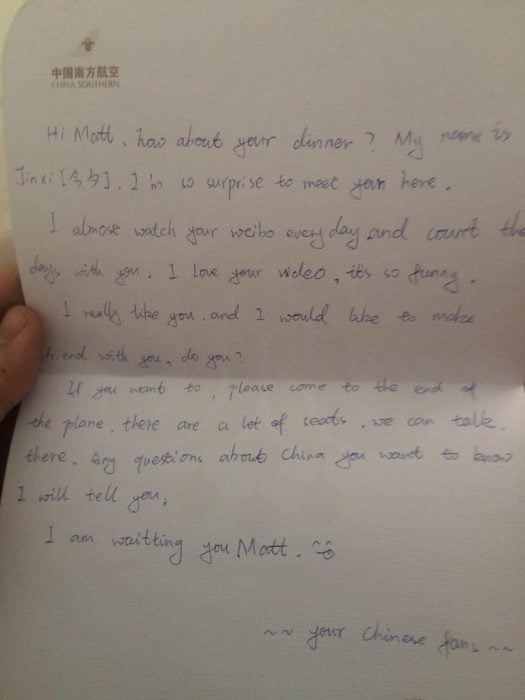 中国南方航空
CHINA SOUTHERN
Hi Matt, how about your dinner? My name is
Jinxi [今夕]. I'm so surprise to meet you here.
I almose watch your weibo everyday and count the
days with you. I Love your video, it's so funny.
I really like you. and I would like to make
friend with you, do you?
If you want to, please come to the end of
the plane, there are a lot of seats. we can talk.
there. Any questions about China you want to know
I will tell you;
I am waitting you Matt. ^^
~~ your Chinese fans ~~